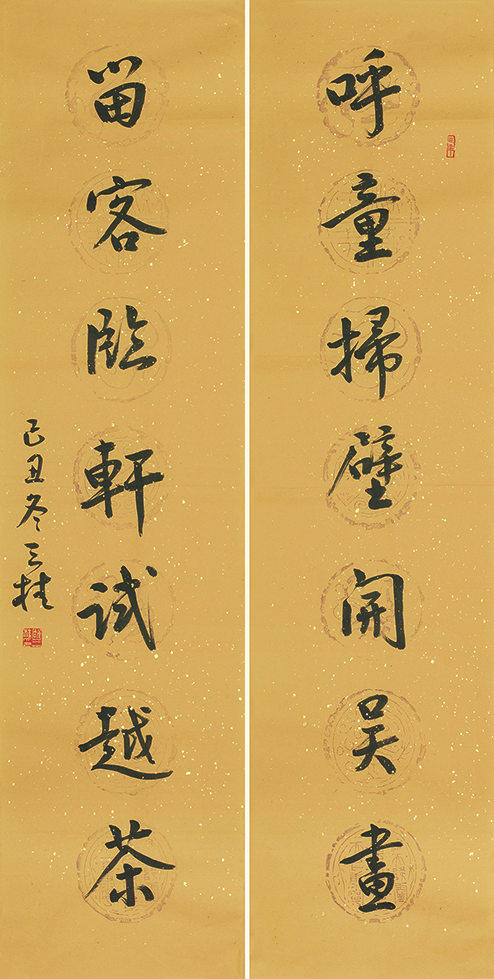 呼童掃壁開吴畫
留客臨軒試越茶
己丑冬三桂